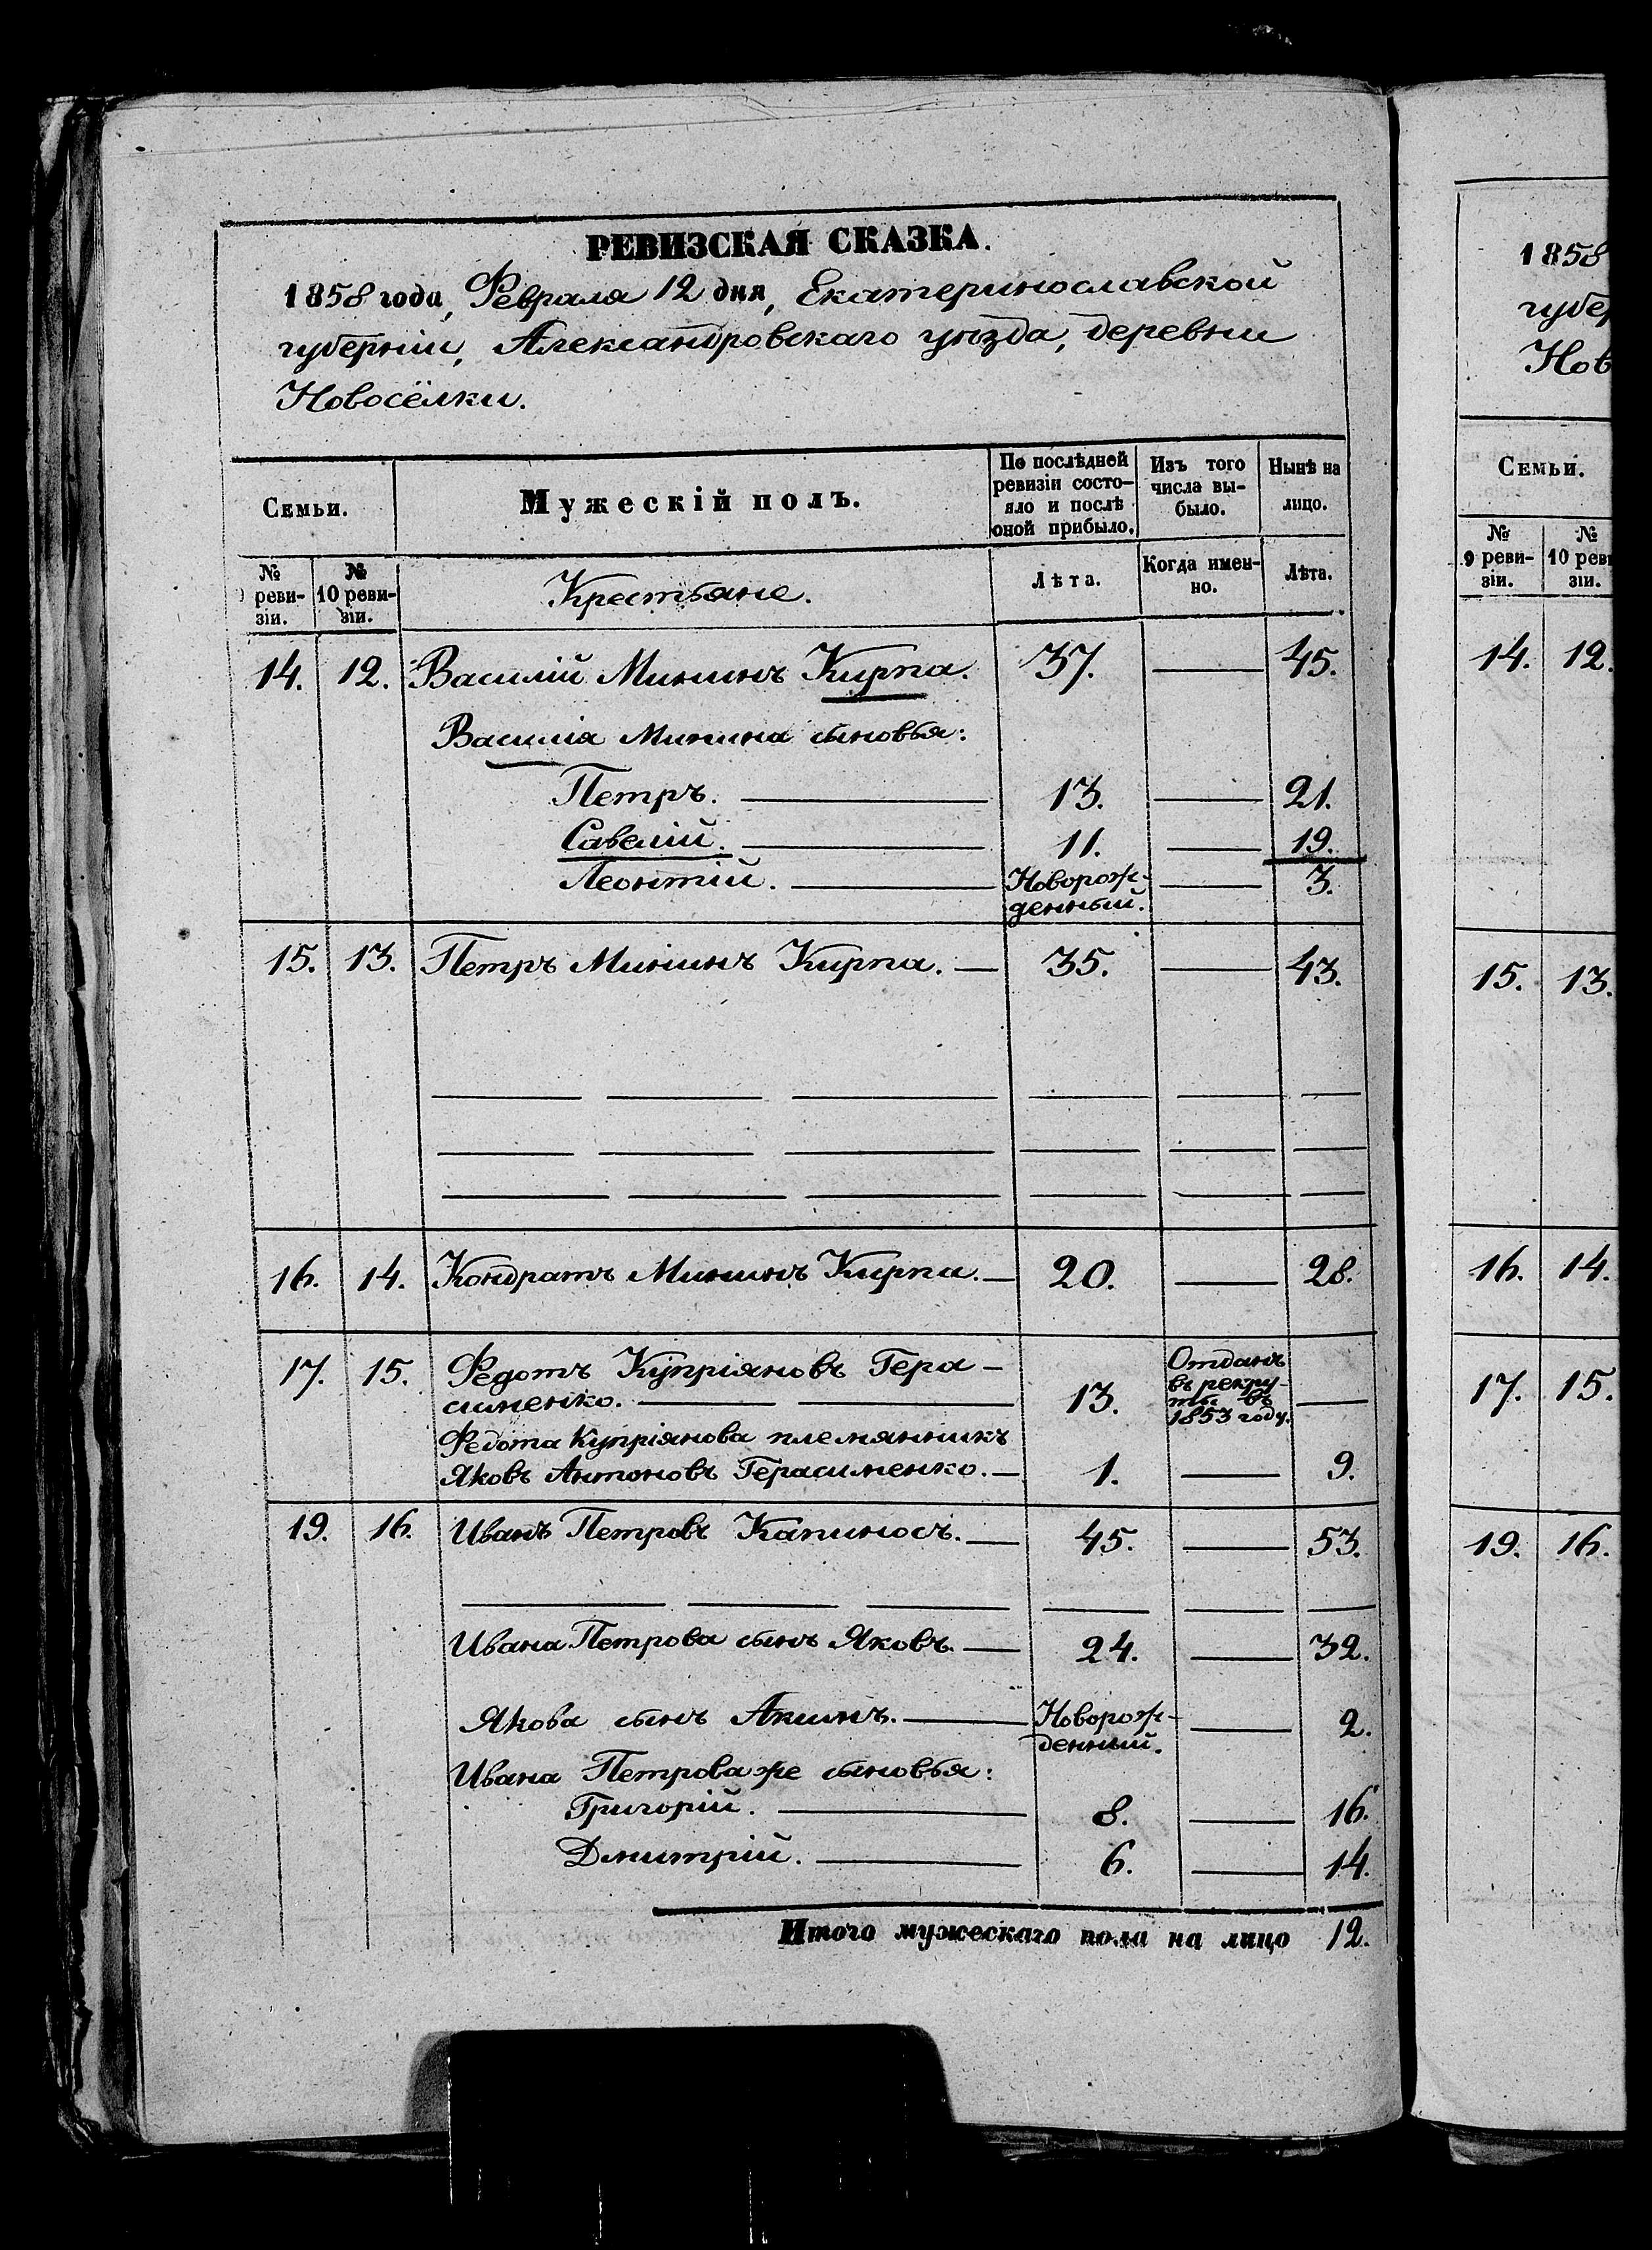 РЕВИЗСКАЯ СКАЗКА.
1858 года, Февраля 12 дня, Екатеринославской
губерніи, Александровскаго уѣзда, деревни
Новосёлки.
Семьи.
Мужескій полъ.
По послѣдней
ревизіи состо-
яло и послѣ
оной прибыло.
Изъ того
числа вы-
было.
Нынѣ на
лицо.
№
реви-
зіи.
№
10 реви-
зіи.
Крестьяне.
Лѣта.
Когда имен-
но.
Лѣта.
14. 12. Василій Мининъ Кирпа. 37. — 45.
Василія Минина сыновья:
Петръ. — 13. — 21.
Савелій. — 11. — 19.
Леонтій. — Новорож- — 3.
денный.
15. 13. Петръ Мининъ Кирпа. — 35. — 43.
16. 14. Кондратъ Мининъ Кирпа. — 20. — 28.
17. 15. Федотъ Купріяновъ Гера-
сименко. — 13. Отданъ
въ рекру-
ты въ
1853 году. —
Федота Купріянова племянникъ
Яковъ Антоновъ Герасименко. — 1. — 9.
19. 16. Иванъ Петровъ Капиносъ. — 45. — 53.
Ивана Петрова сынъ Яковъ. — 24. — 32.
Якова сынъ Акимъ. — Новорож- — 2.
денный.
Ивана Петрова же сыновья:
Григорій. — 8. — 16.
Дмитрій. — 6. — 14.
Итого мужескаго пола на лицо 12.
1858
губер
Нов
Семьи.
№
9 реви-
зіи.
№
10 реви
зіи.
14. 12.
15. 13.
16. 14.
17. 15.
19. 16.